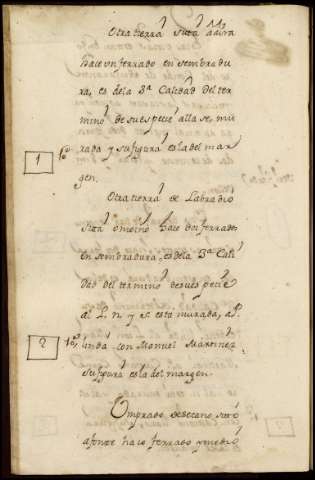 Otra tierra sita adita
hace un ferrado en sembradu
ra, es dela 3ª Calidad del ter
mino, de su especie allase mu
1 rada y su figura es la del mar
gen.
Otra tierra de Labradio
sita hace dos ferrados
en sembradura, es dela 3ª Cali
dad del termino de su especie
al y esta murada,
2 linda con Manuel Martinez
su figura es la del margen.
Un prado de secano, sito
a hace ferrado y medio